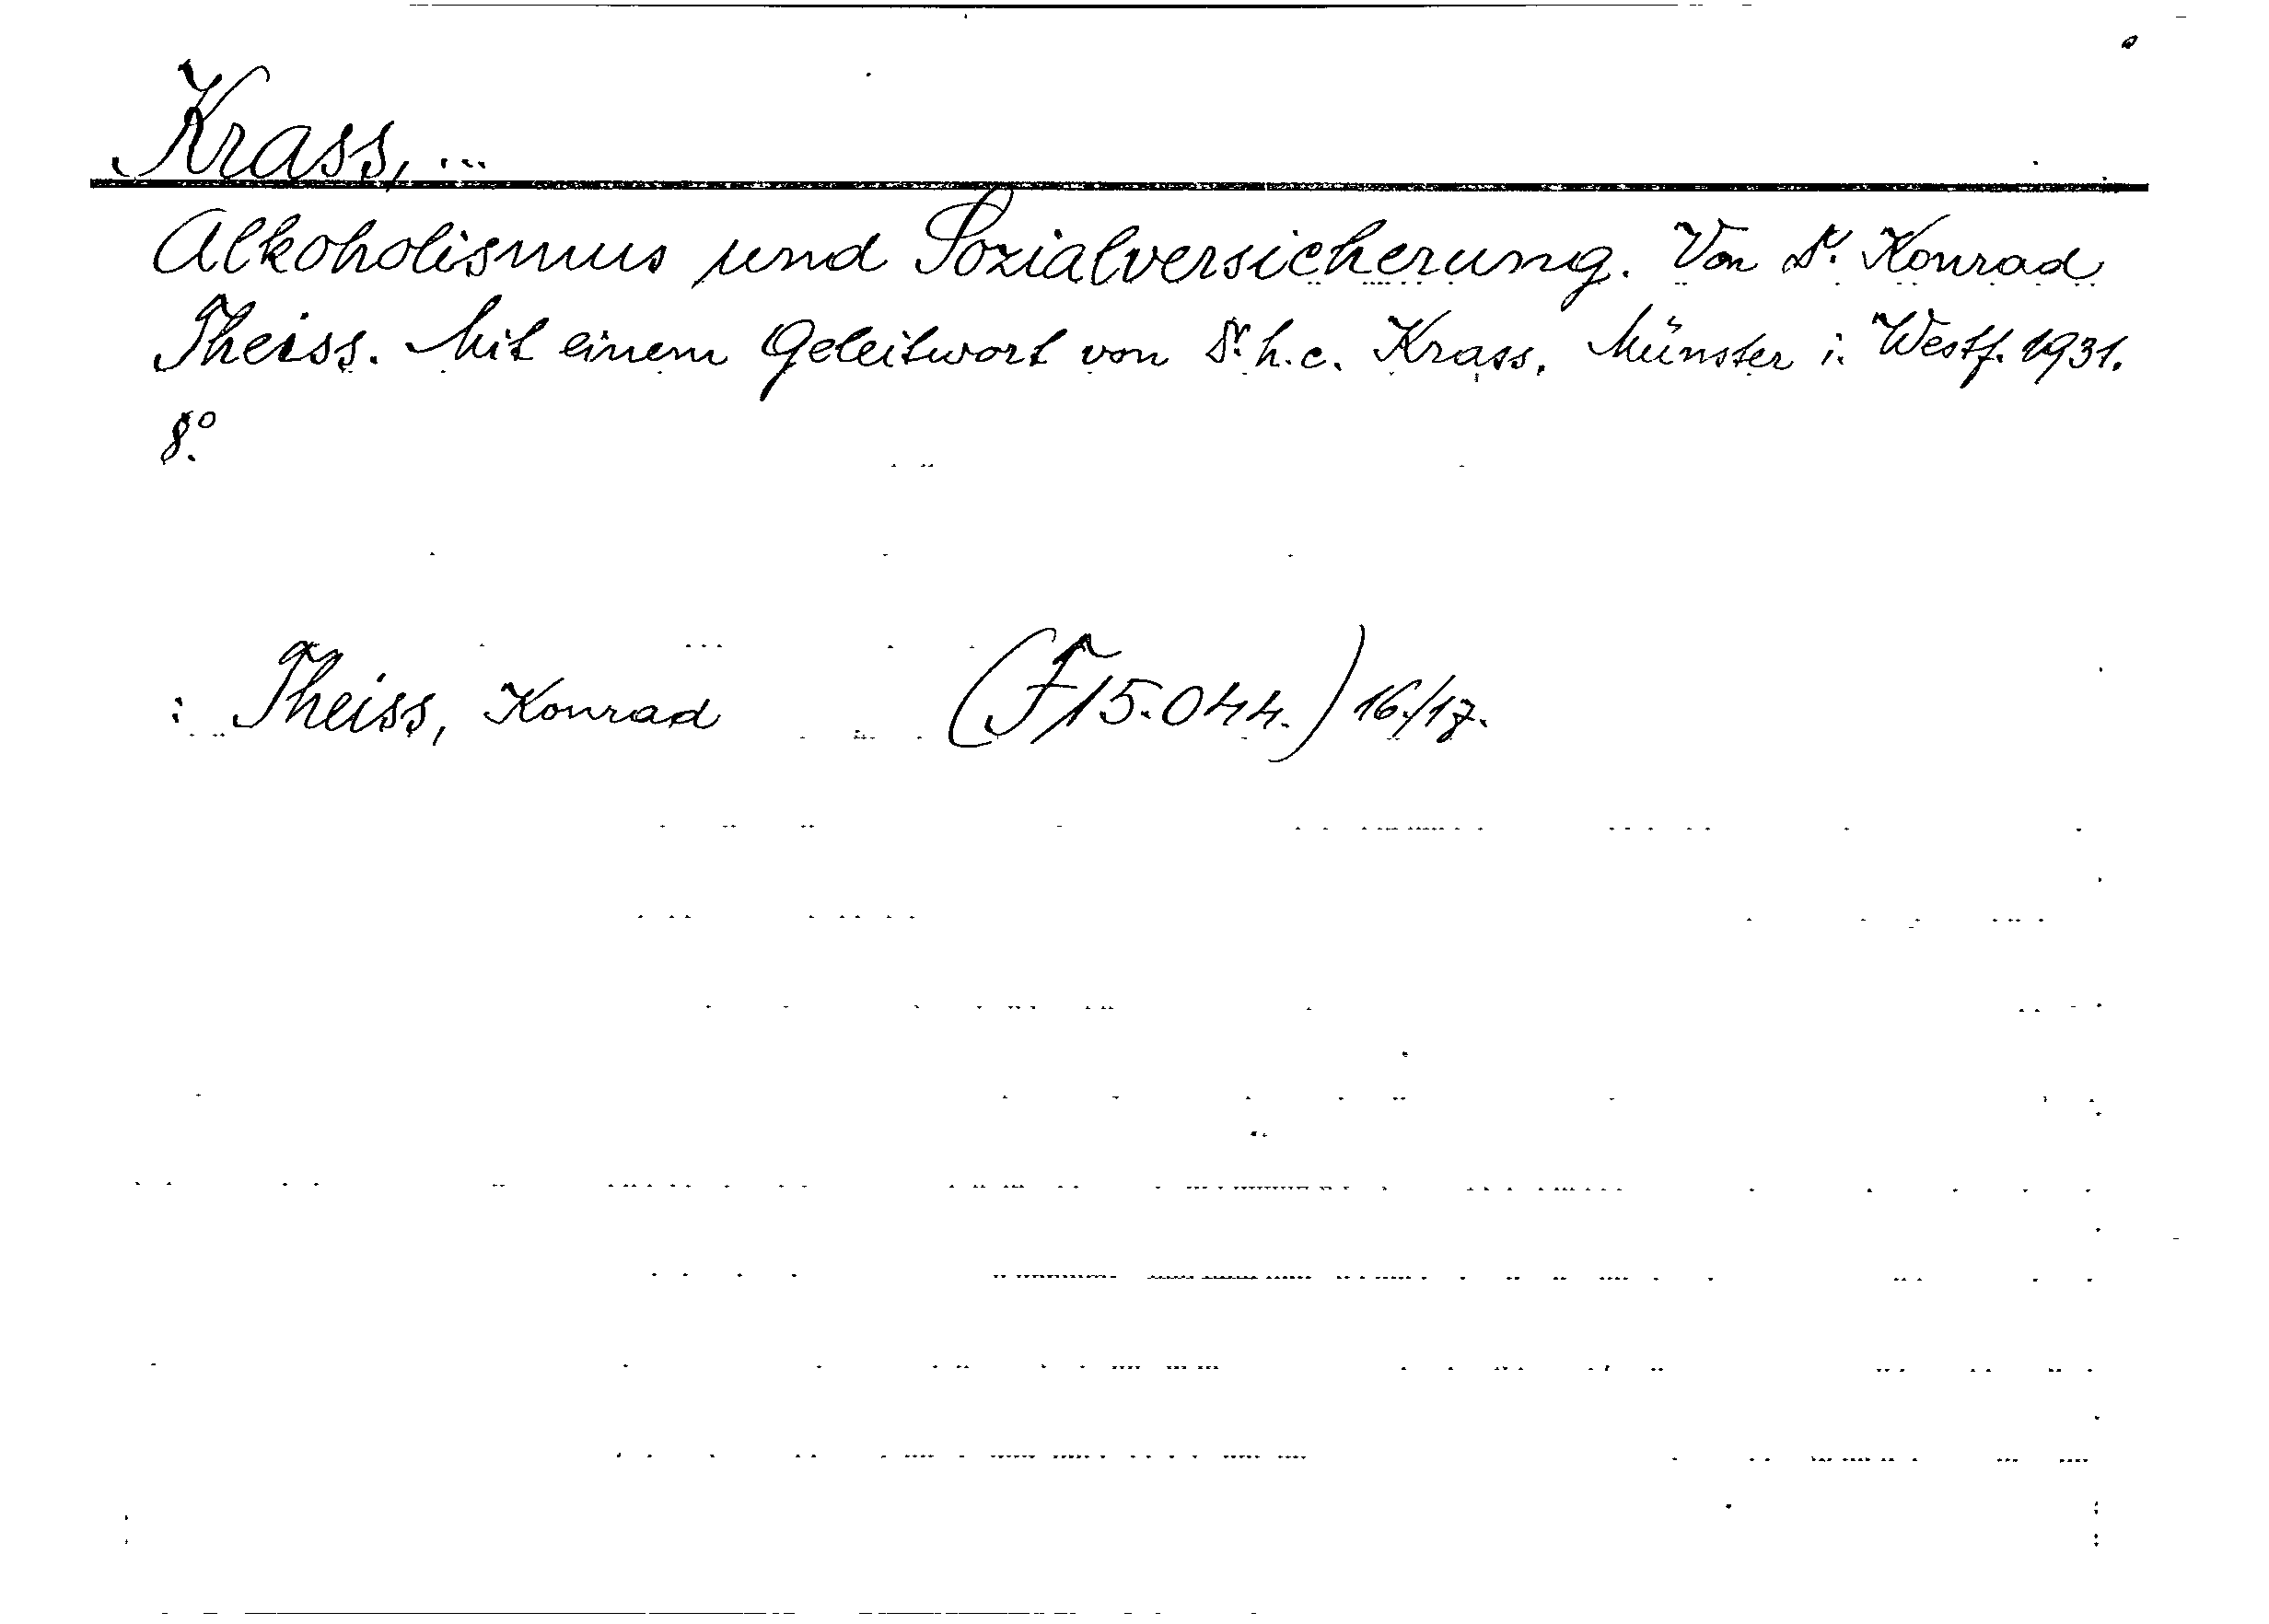 Krass, ...
Alkoholismus und Sozialversicherung. Von Dr. Konrad
Theiss. Mit einem Geleitwort von Dr. h.c. Krass. Münster i. Westf. 1931.
8.°
: Theiss, Konrad (F 15.044.) 16./17.